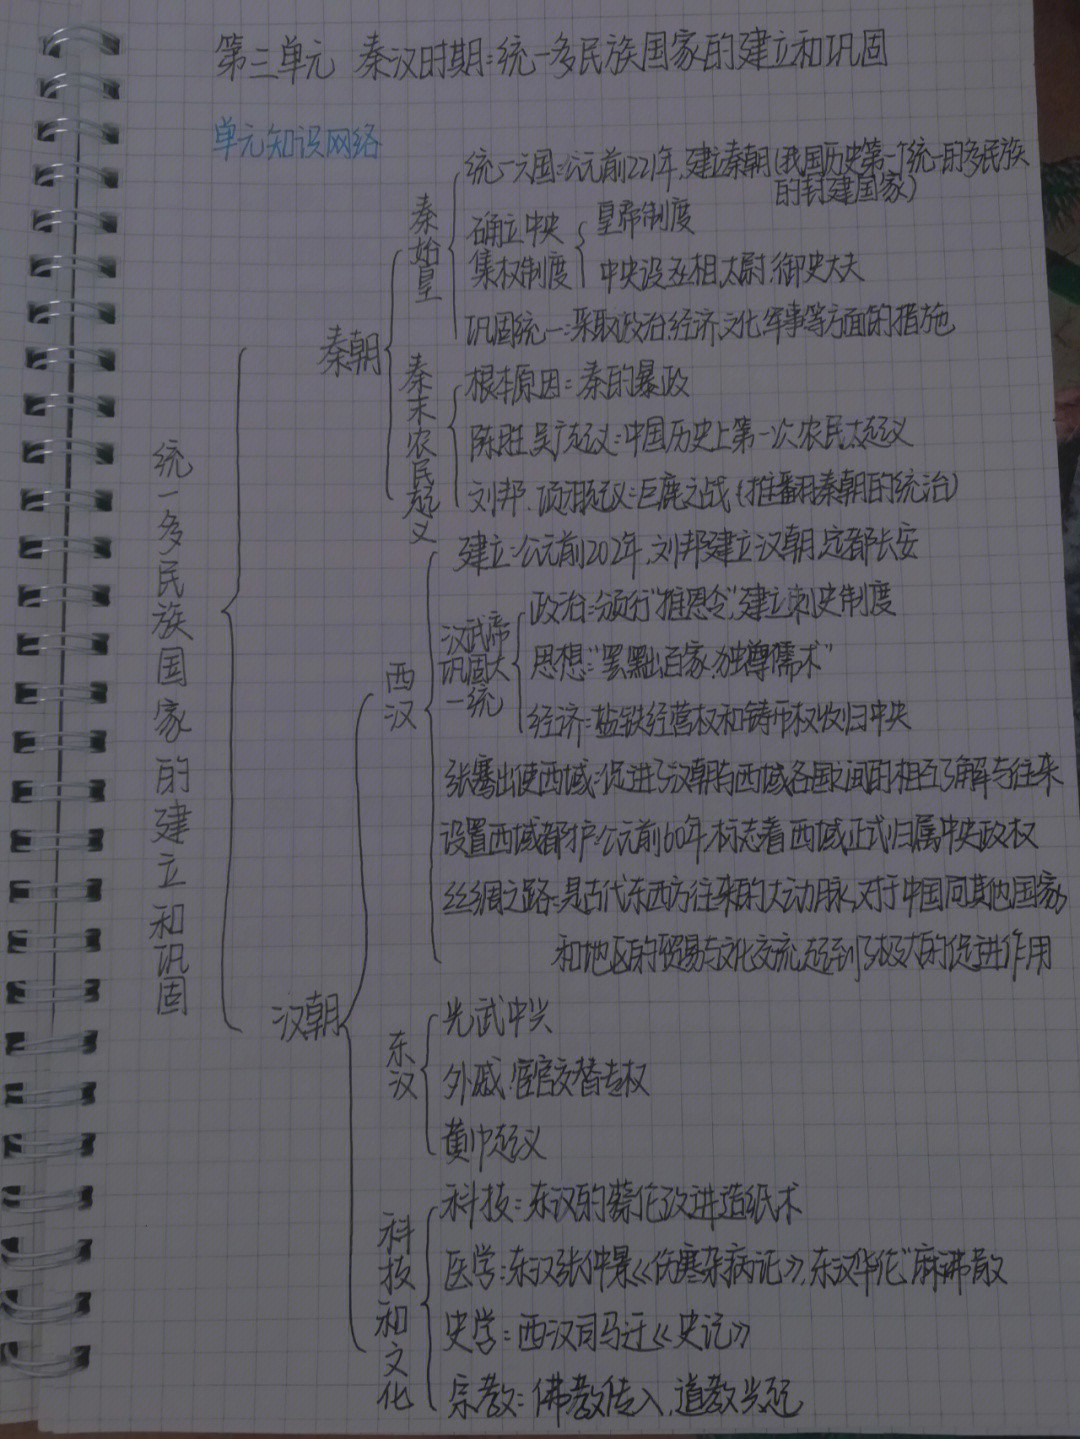 第三单元 秦汉时期:统一多民族国家的建立和巩固
单元知识网络
统一多民族国家的建立和巩固
秦朝
秦始皇
统一六国:公元前221年,建立秦朝(我国历史第一个统一的多民族
的封建国家)
确立中央
集权制度
皇帝制度
中央设丞相,太尉,御史大夫
巩固统一:采取政治,经济,文化,军事等方面的措施
秦末农民起义
根本原因:秦的暴政
陈胜,吴广起义:中国历史上第一次农民大起义
刘邦,项羽起义:巨鹿之战(推翻秦朝的统治)
汉朝
西汉
建立:公元前202年,刘邦建立汉朝,定都长安
汉武帝
巩固大
一统
政治:颁行"推恩令",建立刺史制度
思想:"罢黜百家,独尊儒术"
经济:盐铁经营权和铸币权收归中央
张骞出使西域:促进了汉朝与西域各国之间的相互了解与往来
设置西域都护:公元前60年,标志着西域正式归属中央政权
丝绸之路:是古代东西方往来的大动脉,对于中国同其他国家
和地区的贸易与文化交流,起到了极大的促进作用
东汉
光武中兴
外戚,宦官交替专权
黄巾起义
科技和文化
科技:东汉的蔡伦改进造纸术
医学:东汉张仲景《伤寒杂病论》,东汉华佗"麻沸散
史学:西汉司马迁《史记》
宗教:佛教传入,道教兴起